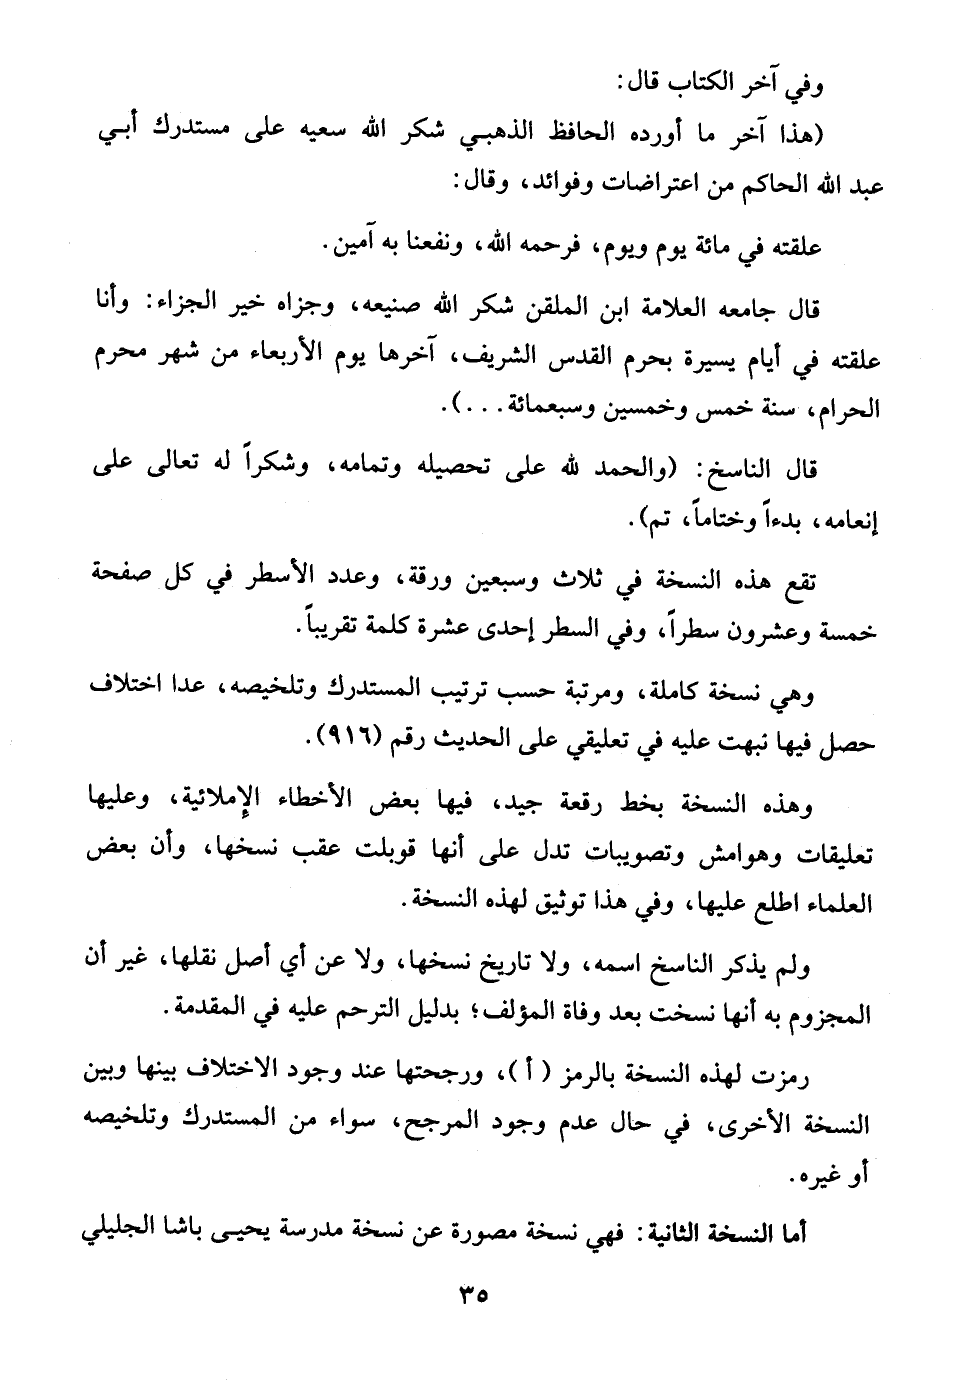 وفي آخر الكتاب قال:
(هذا آخر ما أورده الحافظ الذهبي شكر الله سعيه على مستدرك أبي
عبد الله الحاكم من اعتراضات وفوائد، وقال:
علقته في مائة يوم ويوم، فرحمه الله، ونفعنا به آمين.
قال جامعه العلامة ابن الملقن شكر الله صنيعه، وجزاه خير الجزاء: وأنا
علقته في أيام يسيرة بحرم القدس الشريف، آخرها يوم الأربعاء من شهر محرم
الحرام، سنة خمس وخمسين وسبعمائة...).
قال الناسخ: (والحمد لله على تحصيله وتمامه، وشكراً له تعالى على
إنعامه، بدءاً وختاماً، تم).
تقع هذه النسخة في ثلاث وسبعين ورقة، وعدد الأسطر في كل صفحة
خمسة وعشرون سطراً، وفي السطر إحدى عشرة كلمة تقريباً.
وهي نسخة كاملة، ومرتبة حسب ترتيب المستدرك وتلخيصه، عدا اختلاف
حصل فيها نبهت عليه في تعليقي على الحديث رقم (٩١٦).
وهذه النسخة بخط رقعة جيد، فيها بعض الأخطاء الإملائية، وعليها
تعليقات وهوامش وتصويبات تدل على أنها قوبلت عقب نسخها، وأن بعض
العلماء اطلع عليها، وفي هذا توثيق لهذه النسخة.
ولم يذكر الناسخ اسمه، ولا تاريخ نسخها، ولا عن أي أصل نقلها، غير أن
المجزوم به أنها نسخت بعد وفاة المؤلف؛ بدليل الترحم عليه في المقدمة.
رمزت لهذه النسخة بالرمز (أ)، ورجحتها عند وجود الاختلاف بينها وبين
النسخة الأخرى، في حال عدم وجود المرجح، سواء من المستدرك وتلخيصه
أو غيره.
أما النسخة الثانية: فهي نسخة مصورة عن نسخة مدرسة يحيى باشا الجليلي
٣٥